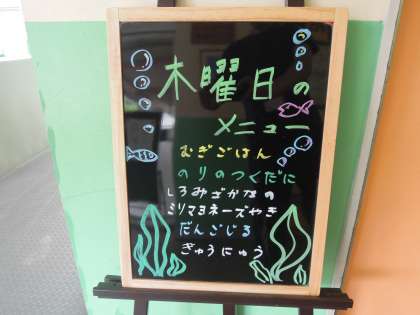 木曜日の
メニュー
むぎごはん
のりのつくだに
しろみざかなの
ミリマヨネーズやき
だんごじる
ぎゅうにゅう